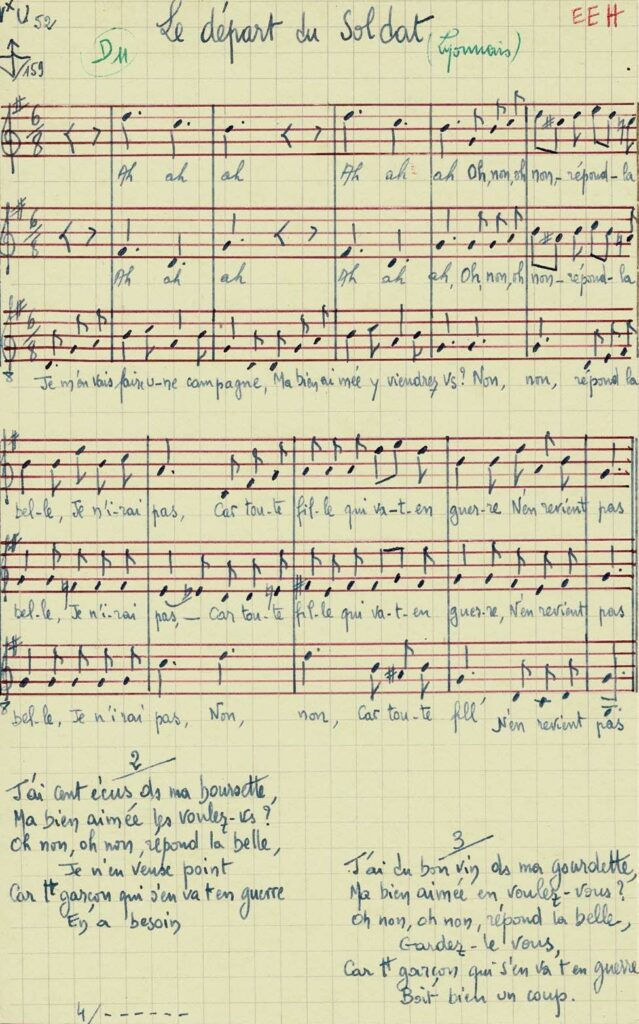 U 52
Le départ du Soldat (Lyonnais)
EEH
159
D11
6/8
Ah ah ah Ah ah ah Oh, non, oh non, répond-la
6/8
Ah ah ah Ah ah ah, Oh, non, oh non-répond-la
6/8
Je m'en vais faire u-ne campagne, Ma bien aimée y viendrez vs? Non, non, répond la
8
bel-le, Je n'i-rai pas, Car tou-te fil-le qui va-t-en guer-re N'en revient pas
bel-le, Je n'i-rai pas, — Car tou-te fil-le qui va-t-en guer-re, N'en revient pas
8
bel-le, Je n'irai pas, Non, non, Car tou-te fill' N'en revient pas
2
J'ai cent écus ds ma boursette,
Ma bien aimée les voulez-vs ?
Oh non, oh non, répond la belle,
Je n'en veuse point
Car tt garçon qui s'en va t en guerre
En a besoin
3
J'ai du bon vin ds ma gourdette,
Ma bien aimée en voulez-vous ?
Oh non, oh non, répond la belle,
Gardez-le vous,
Car tt garçon qui s'en va t en guerre
Boit bien un coup.
4/ - - - - - -